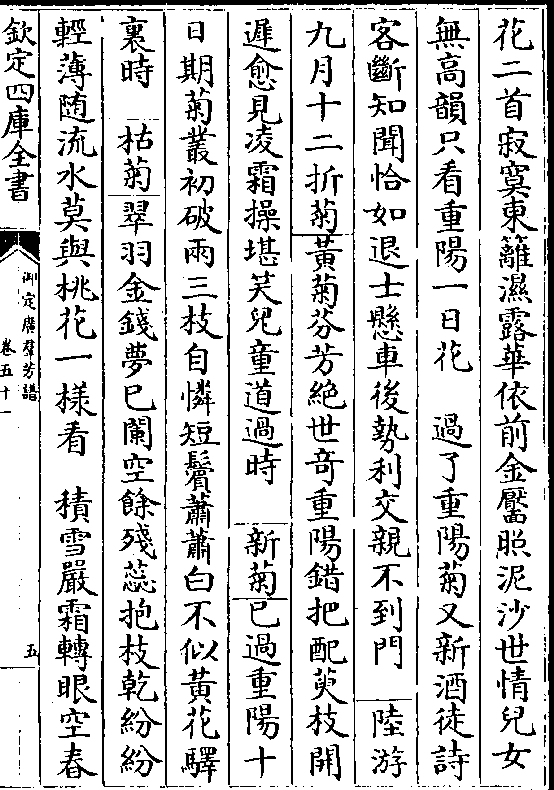 花二首寂寞東籬濕露華依前金靨照泥沙世情兒女
無高韻只看重陽一日花　過了重陽菊又新酒徒詩
客斷知聞恰如退士懸車後勢利交親不到門　陸游
九月十二折菊黃菊芬芳絶世奇重陽錯把配萸枝開
遲愈見凌霜操堪笑兒童道過時　新菊已過重陽十
日期菊叢初破兩三枝自憐短鬢蕭蕭白不似黃花驛
裏時　枯菊翠羽金錢夢已闌空餘殘蕊抱枝乾紛紛
輕薄随流水莫與桃花一樣看　積雪嚴霜轉眼空春
欽定四庫全書
御定廣羣芳譜
卷五十一
五